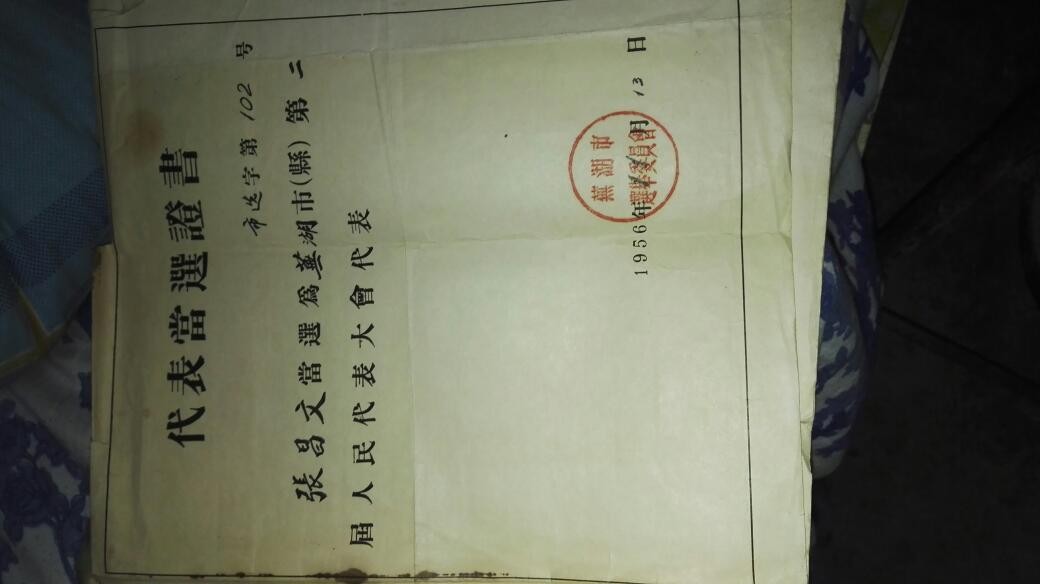 代表當選證書
市选字第102号
張昌文當選為蕪湖市(縣)第二
屆人民代表大會代表
蕪湖市
選舉委員會
1956年 月13日